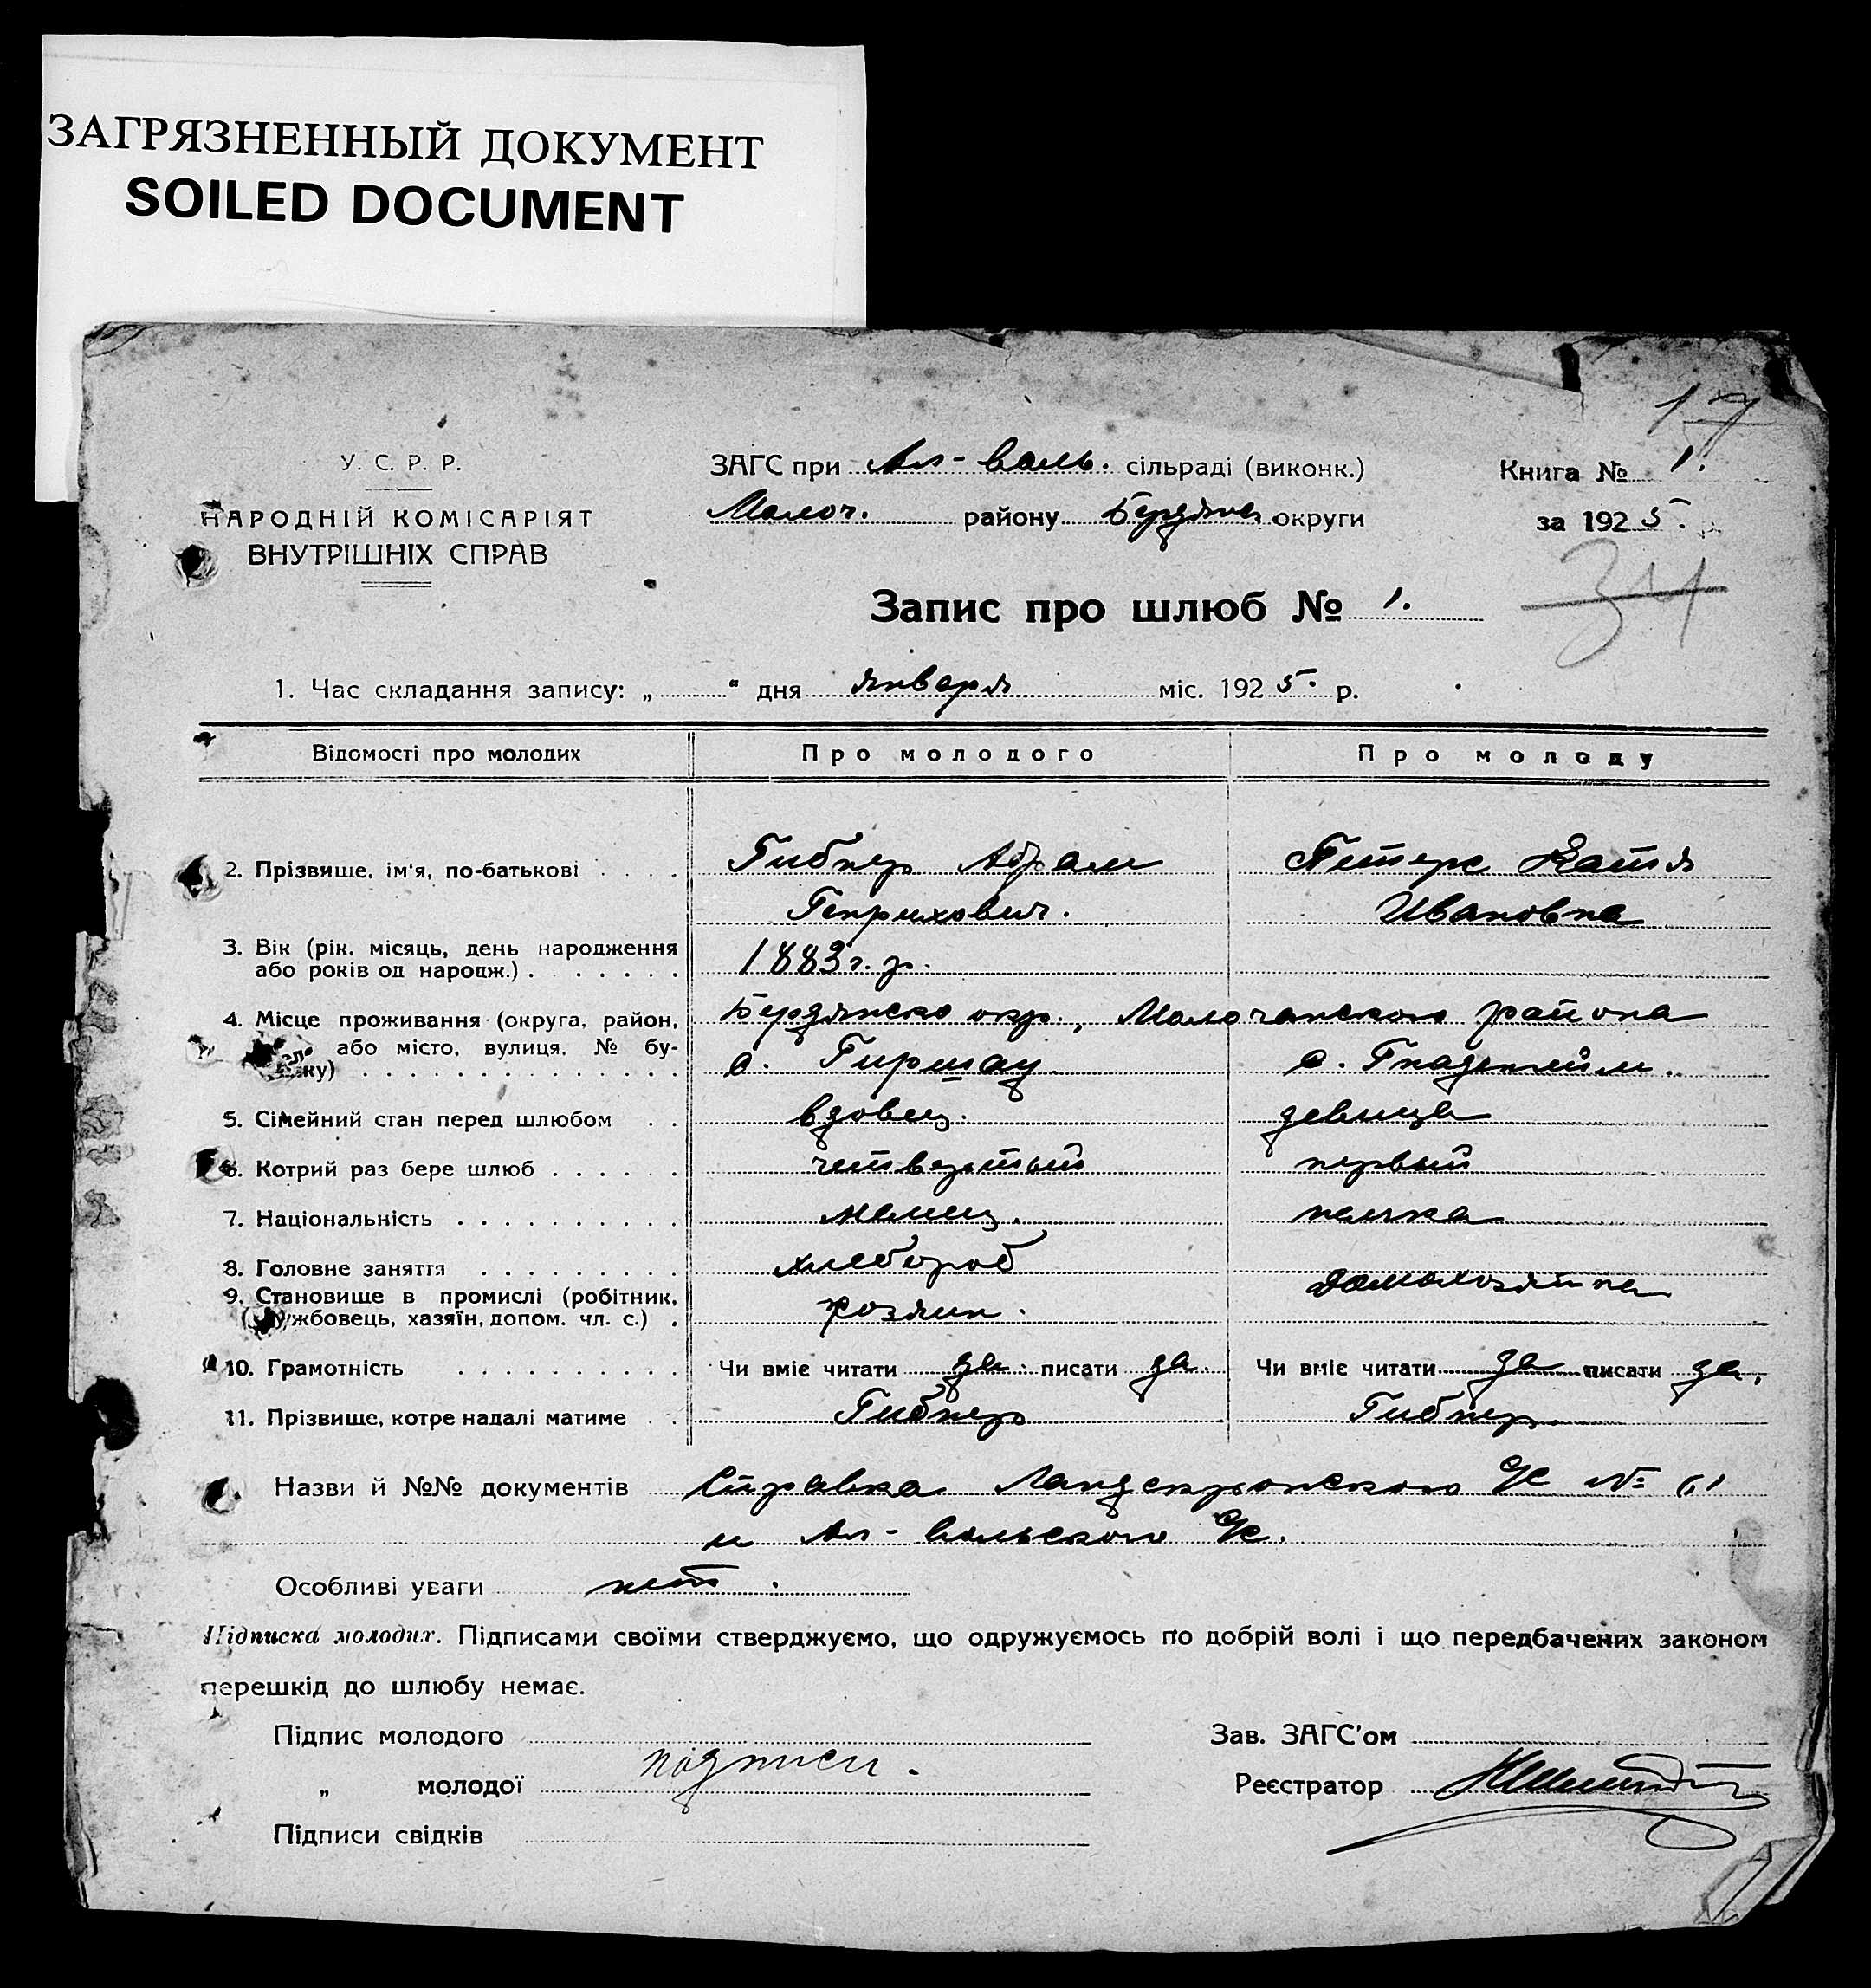 ЗАГРЯЗНЕННЫЙ ДОКУМЕНТ
SOILED DOCUMENT
17
У. С. Р. Р.
НАРОДНІЙ КОМІСАРІЯТ
ВНУТРІШНІХ СПРАВ
ЗАГС при Ал-валь. сільраді (виконк.)
Молоч. району Бердянс округи
Книга № 1.
за 1925.
34
Запис про шлюб № 1.
1. Час складання запису: „ “ дня января міс. 1925. р.
Відомості про молодих Про молодого Про молоду
2. Прізвище, ім'я, по-батькові . . . . Гибнер Абрам Петерс Катя
Генрихович. Ивановна
3. Вік (рік, місяць, день народження
або років од народж.) . . . . . . . 1883 г. р.
4. Місце проживання (округа, район, Бердянско окр., Молочанского района
або місто, вулиця, № бу-
ку) . . . . . . . . . . . . . . с. Гиршау с. Гнаденгейм.
5. Сімейний стан перед шлюбом . . вдовец. девица
6. Котрий раз бере шлюб . . . . . . четвертый первый
7. Національність . . . . . . . . . . немец. немка
8. Головне заняття . . . . . . . . . хлебороб
9. Становище в промислі (робітник, домохозяйка
ужбовець, хазяїн, допом. чл. с.) . хозяин.
10. Грамотність . . . . . . . . . . Чи вміє читати да. писати да. Чи вміє читати да писати да.
11. Прізвище, котре надалі матиме . . Гибнер Гибнер.
Назви й №№ документів Справка Ландскронского с/с № 61
и Ал-вальского с/с.
Особливі уваги нет.
Підписка молодих. Підписами своїми стверджуємо, що одружуємось по добрій волі і що передбачених законом
перешкід до шлюбу немає.
Підпис молодого
„ молодої подписи.
Підписи свідків
Зав. ЗАГС'ом
Реєстратор